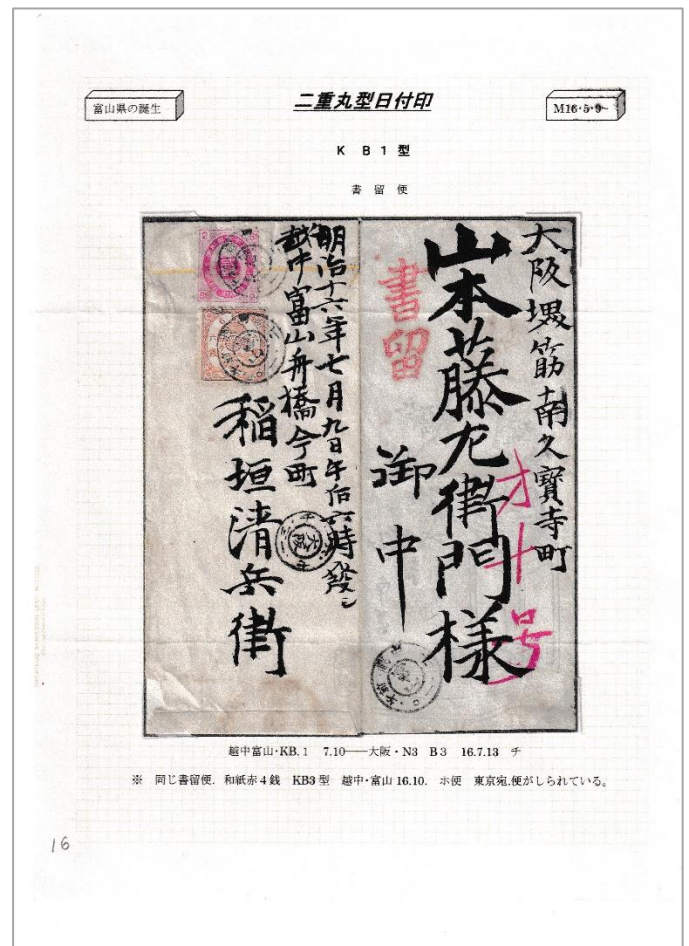 富山県の誕生
二重丸型日付印
M16・5・9
K B 1 型
書 留 便
大阪堺筋南久寶寺町
山本藤左衛門様
御中
書留
才十号
明治十六年七月九日午后六時発シ
越中富山舟橋今町
稲垣清兵衛
大阪
越中富山・KB.1 7.10――大阪・N3 B3 16.7.13 チ
※ 同じ書留便. 和紙赤4銭 KB3型 越中・富山 16.10. ホ便 東京宛.便がしられている。
16